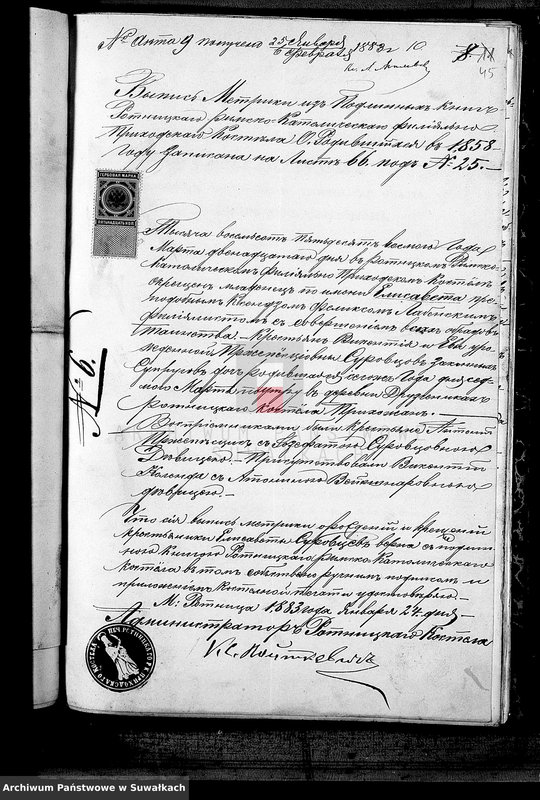 № Акта 9 получено 25 Января / 6 Февраля 1883 г 10.
8. 11
45
Выпись Метрики изъ Подлинныхъ Книгъ
Ротницкаго римско-Католическаго филіяльно
Приходскаго Костела О Родившихся въ 1858
году записана на Листѣ 66. подъ № 25.—
ГЕРБОВАЯ МАРКА
ПЯТНАДЦАТЬ КОП.
№ 6.
Тысяча восемьсотъ пятьдесятъ восьмого Года
Марта двенадцатаго дня въ Ротницкомъ Римско
Католическомъ Филіяльно Приходскомъ Костелѣ
окрещенъ младенецъ по имени Елисавета пре-
подобнымъ Ксендзомъ Феликсомъ
Филіялистомъ съ совершеніемъ всѣхъ обрядовъ
Таинства.— Крестьянъ Викентія и Евы уро-
жденной Суровцовъ законныхъ
Супруговъ дочь родившаяся сего же Года дня сед-
мого Марта въ деревни Друцкиникахъ
Ротницкаго Костела Прихожанъ.—
Воспріемниками были Крестьяне Антоній
съ Іозефатою Суровцовною
Дѣвицею.— Присутствовали Викентій
съ Антониною
дѣвицею.—
Что сія выпись метрики о рожденіи и крещеніи
крестьянки Елисаветы Суровцовъ вѣрна съ подлин-
ною Книгою Ротницкаго Римско Католическаго
Костела въ томъ собственноручнымъ подписомъ и
приложеніемъ Костельной печати удостовѣряю.—
М. Ротница 1883 года Января 24 дня.—
Администраторъ Ротницкаго Костела
Кс.
Archiwum Państwowe w Suwałkach